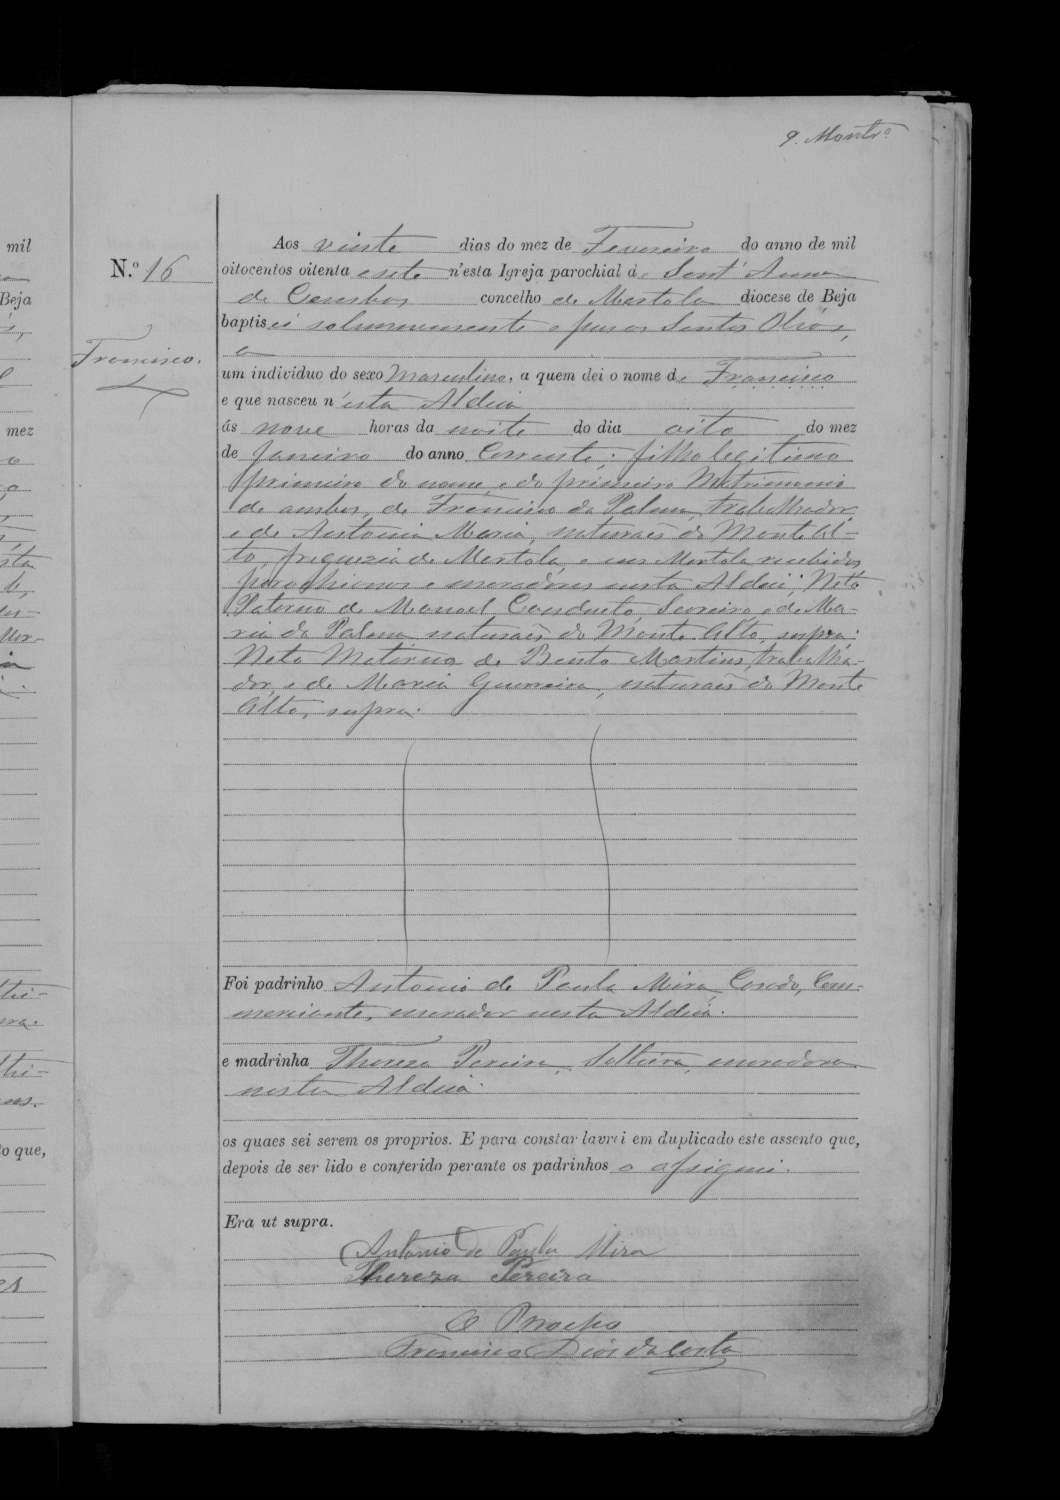 9. Montrº
Aos vinte dias do mez de Fevereiro do anno de mil
N.º 16
oitocentos oitenta e sete n'esta Igreja parochial de Sant'Anna
de Cambas concelho de Mertola diocese de Beja
baptisei solemnemente e puz os Santos Oleos,
a
Francisco.
um individuo do sexo Masculino, a quem dei o nome de Francisco
e que nasceu n'esta Aldeia
ás nove horas da noite do dia oito do mez
de Janeiro do anno Corrente; filho legitimo
primeiro do nome, e do primeiro Matrimonio
de ambos, de Francisco da Palma, trabalhador,
e de Antonia Maria, naturaes do Monte Al-
to, freguezia de Mertola, e em Mertola recebidos
parochianos e moradores nesta Aldeia; Neto
Paterno de Manoel Conducto, Seareiro e de Ma-
ria da Palma naturaes do Monte Alto, supra:
Neto Materno de Bento Martins, trabalha-
dor, e de Maria Guerreira, naturaes do Monte
Alto, supra.
Foi padrinho Antonio de Paula Mira, Casado, Com-
merciante, morador nesta Aldeia.
e madrinha Thereza Pereira, Solteira, moradora
nesta Aldeia.
os quaes sei serem os proprios. E para constar lavrei em duplicado este assento que,
depois de ser lido e conferido perante os padrinhos o assignei.
Era ut supra.
Antonio de Paula Mira
Thereza Pereira
O Parocho
Francisco Dias da Costa
mil
Beja
mez
to que,